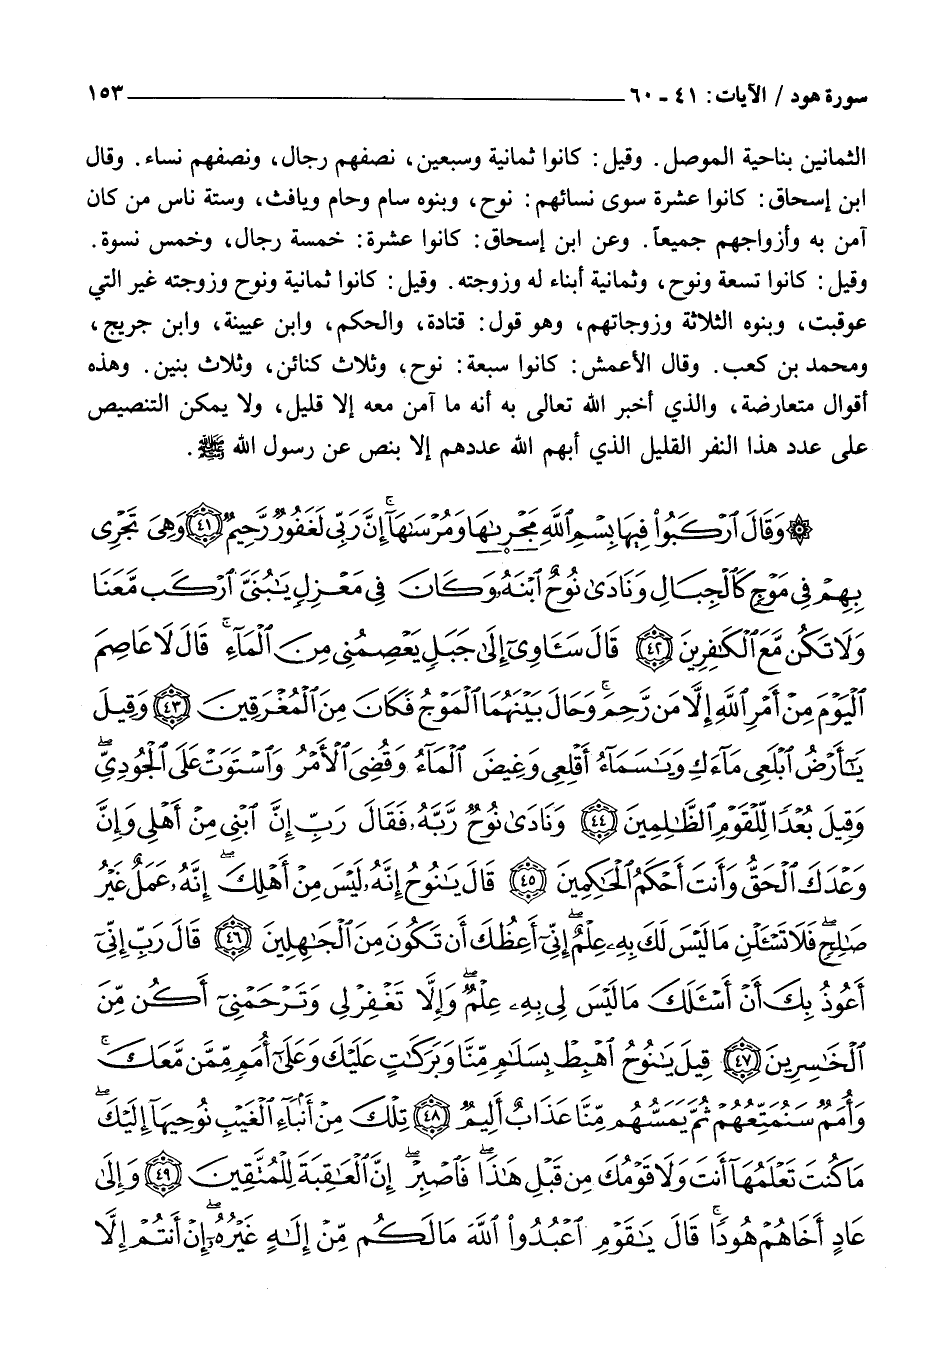 سورة هود / الآيات: ٤١ - ٦٠ ١٥٣
الثمانين بناحية الموصل. وقيل: كانوا ثمانية وسبعين، نصفهم رجال، ونصفهم نساء. وقال
ابن إسحاق: كانوا عشرة سوى نسائهم: نوح، وبنوه سام وحام ويافث، وستة ناس من كان
آمن به وأزواجهم جميعاً. وعن ابن إسحاق: كانوا عشرة: خمسة رجال، وخمس نسوة.
وقيل: كانوا تسعة ونوح، وثمانية أبناء له وزوجته. وقيل: كانوا ثمانية ونوح وزوجته غير التي
عوقبت، وبنوه الثلاثة وزوجاتهم، وهو قول: قتادة، والحكم، وابن عيينة، وابن جريج،
ومحمد بن كعب. وقال الأعمش: كانوا سبعة: نوح، وثلاث كنائن، وثلاث بنين. وهذه
أقوال متعارضة، والذي أخبر الله تعالى به أنه ما آمن معه إلا قليل، ولا يمكن التنصيص
على عدد هذا النفر القليل الذي أبهم الله عددهم إلا بنص عن رسول الله ﷺ.
۞ وَقَالَ ٱرْكَبُوا۟ فِيهَا بِسْمِ ٱللَّهِ مَجْر۪ىٰهَا وَمُرْسَىٰهَآ ۚ إِنَّ رَبِّى لَغَفُورٌ رَّحِيمٌ ﴿٤١﴾ وَهِىَ تَجْرِى
بِهِمْ فِى مَوْجٍ كَٱلْجِبَالِ وَنَادَىٰ نُوحٌ ٱبْنَهُۥ وَكَانَ فِى مَعْزِلٍ يَٰبُنَىَّ ٱرْكَب مَّعَنَا
وَلَا تَكُن مَّعَ ٱلْكَٰفِرِينَ ﴿٤٢﴾ قَالَ سَـَٔاوِىٓ إِلَىٰ جَبَلٍ يَعْصِمُنِى مِنَ ٱلْمَآءِ ۚ قَالَ لَا عَاصِمَ
ٱلْيَوْمَ مِنْ أَمْرِ ٱللَّهِ إِلَّا مَن رَّحِمَ ۚ وَحَالَ بَيْنَهُمَا ٱلْمَوْجُ فَكَانَ مِنَ ٱلْمُغْرَقِينَ ﴿٤٣﴾ وَقِيلَ
يَٰٓأَرْضُ ٱبْلَعِى مَآءَكِ وَيَٰسَمَآءُ أَقْلِعِى وَغِيضَ ٱلْمَآءُ وَقُضِىَ ٱلْأَمْرُ وَٱسْتَوَتْ عَلَى ٱلْجُودِىِّ ۖ
وَقِيلَ بُعْدًا لِّلْقَوْمِ ٱلظَّٰلِمِينَ ﴿٤٤﴾ وَنَادَىٰ نُوحٌ رَّبَّهُۥ فَقَالَ رَبِّ إِنَّ ٱبْنِى مِنْ أَهْلِى وَإِنَّ
وَعْدَكَ ٱلْحَقُّ وَأَنتَ أَحْكَمُ ٱلْحَٰكِمِينَ ﴿٤٥﴾ قَالَ يَٰنُوحُ إِنَّهُۥ لَيْسَ مِنْ أَهْلِكَ ۖ إِنَّهُۥ عَمَلٌ غَيْرُ
صَٰلِحٍ ۖ فَلَا تَسْـَٔلْنِ مَا لَيْسَ لَكَ بِهِۦ عِلْمٌ ۖ إِنِّىٓ أَعِظُكَ أَن تَكُونَ مِنَ ٱلْجَٰهِلِينَ ﴿٤٦﴾ قَالَ رَبِّ إِنِّىٓ
أَعُوذُ بِكَ أَنْ أَسْـَٔلَكَ مَا لَيْسَ لِى بِهِۦ عِلْمٌ ۖ وَإِلَّا تَغْفِرْ لِى وَتَرْحَمْنِىٓ أَكُن مِّنَ
ٱلْخَٰسِرِينَ ﴿٤٧﴾ قِيلَ يَٰنُوحُ ٱهْبِطْ بِسَلَٰمٍ مِّنَّا وَبَرَكَٰتٍ عَلَيْكَ وَعَلَىٰٓ أُمَمٍ مِّمَّن مَّعَكَ ۚ
وَأُمَمٌ سَنُمَتِّعُهُمْ ثُمَّ يَمَسُّهُم مِّنَّا عَذَابٌ أَلِيمٌ ﴿٤٨﴾ تِلْكَ مِنْ أَنۢبَآءِ ٱلْغَيْبِ نُوحِيهَآ إِلَيْكَ ۖ
مَا كُنتَ تَعْلَمُهَآ أَنتَ وَلَا قَوْمُكَ مِن قَبْلِ هَٰذَا ۖ فَٱصْبِرْ ۖ إِنَّ ٱلْعَٰقِبَةَ لِلْمُتَّقِينَ ﴿٤٩﴾ وَإِلَىٰ
عَادٍ أَخَاهُمْ هُودًا ۚ قَالَ يَٰقَوْمِ ٱعْبُدُوا۟ ٱللَّهَ مَا لَكُم مِّنْ إِلَٰهٍ غَيْرُهُۥٓ ۖ إِنْ أَنتُمْ إِلَّا